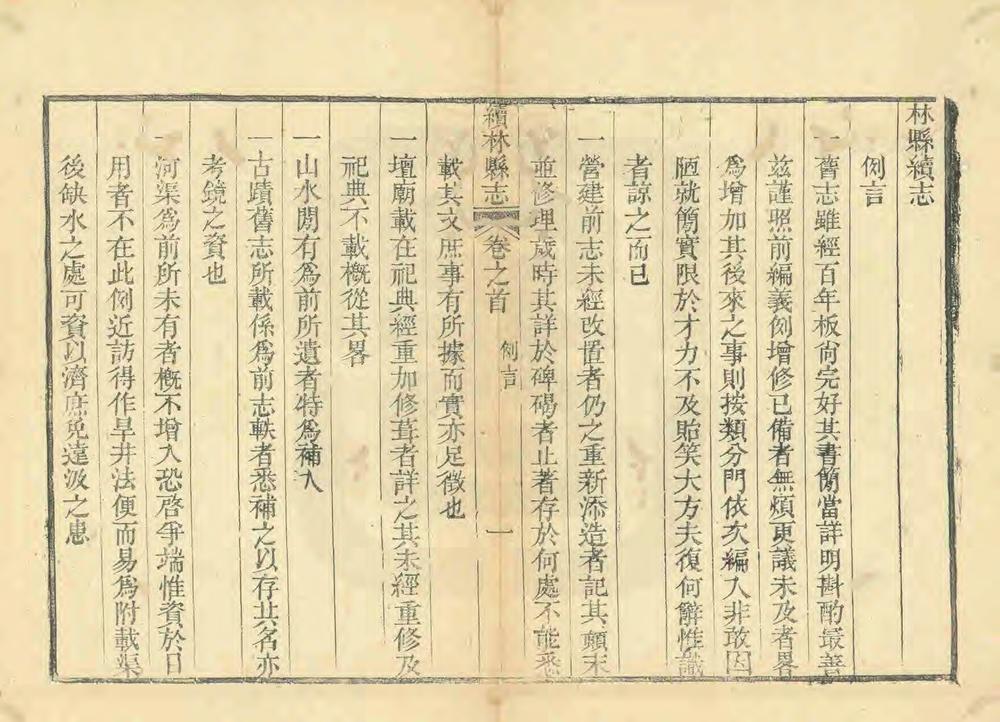 林縣續志
例言
一舊志雖經百年板尚完好其書簡當詳明斟酌最善
茲謹照前編義例增修已備者無煩更議未及者畧
爲增加其後來之事則按類分門依次編入非敢因
陋就簡實限於才力不及貽笑大方夫復何辭惟識
者諒之而已
一營建前志未經改置者仍之重新添造者記其顛末
並修理歲時其詳於碑碣者止著存於何處不能悉
續林縣志 卷之首 例言 一
載其文庶事有所據而實亦足徵也
一壇廟載在祀典經重加修葺者詳之其未經重修及
祀典不載槪從其畧
一山水間有爲前所遺者特爲補入
一古蹟舊志所載係爲前志軼者悉補之以存其名亦
考鏡之資也
一河渠爲前所未有者槪不增入恐啓爭端惟資於日
用者不在此例近訪得作旱井法便而易爲附載渠
後缺水之處可資以濟庶免遠汲之患